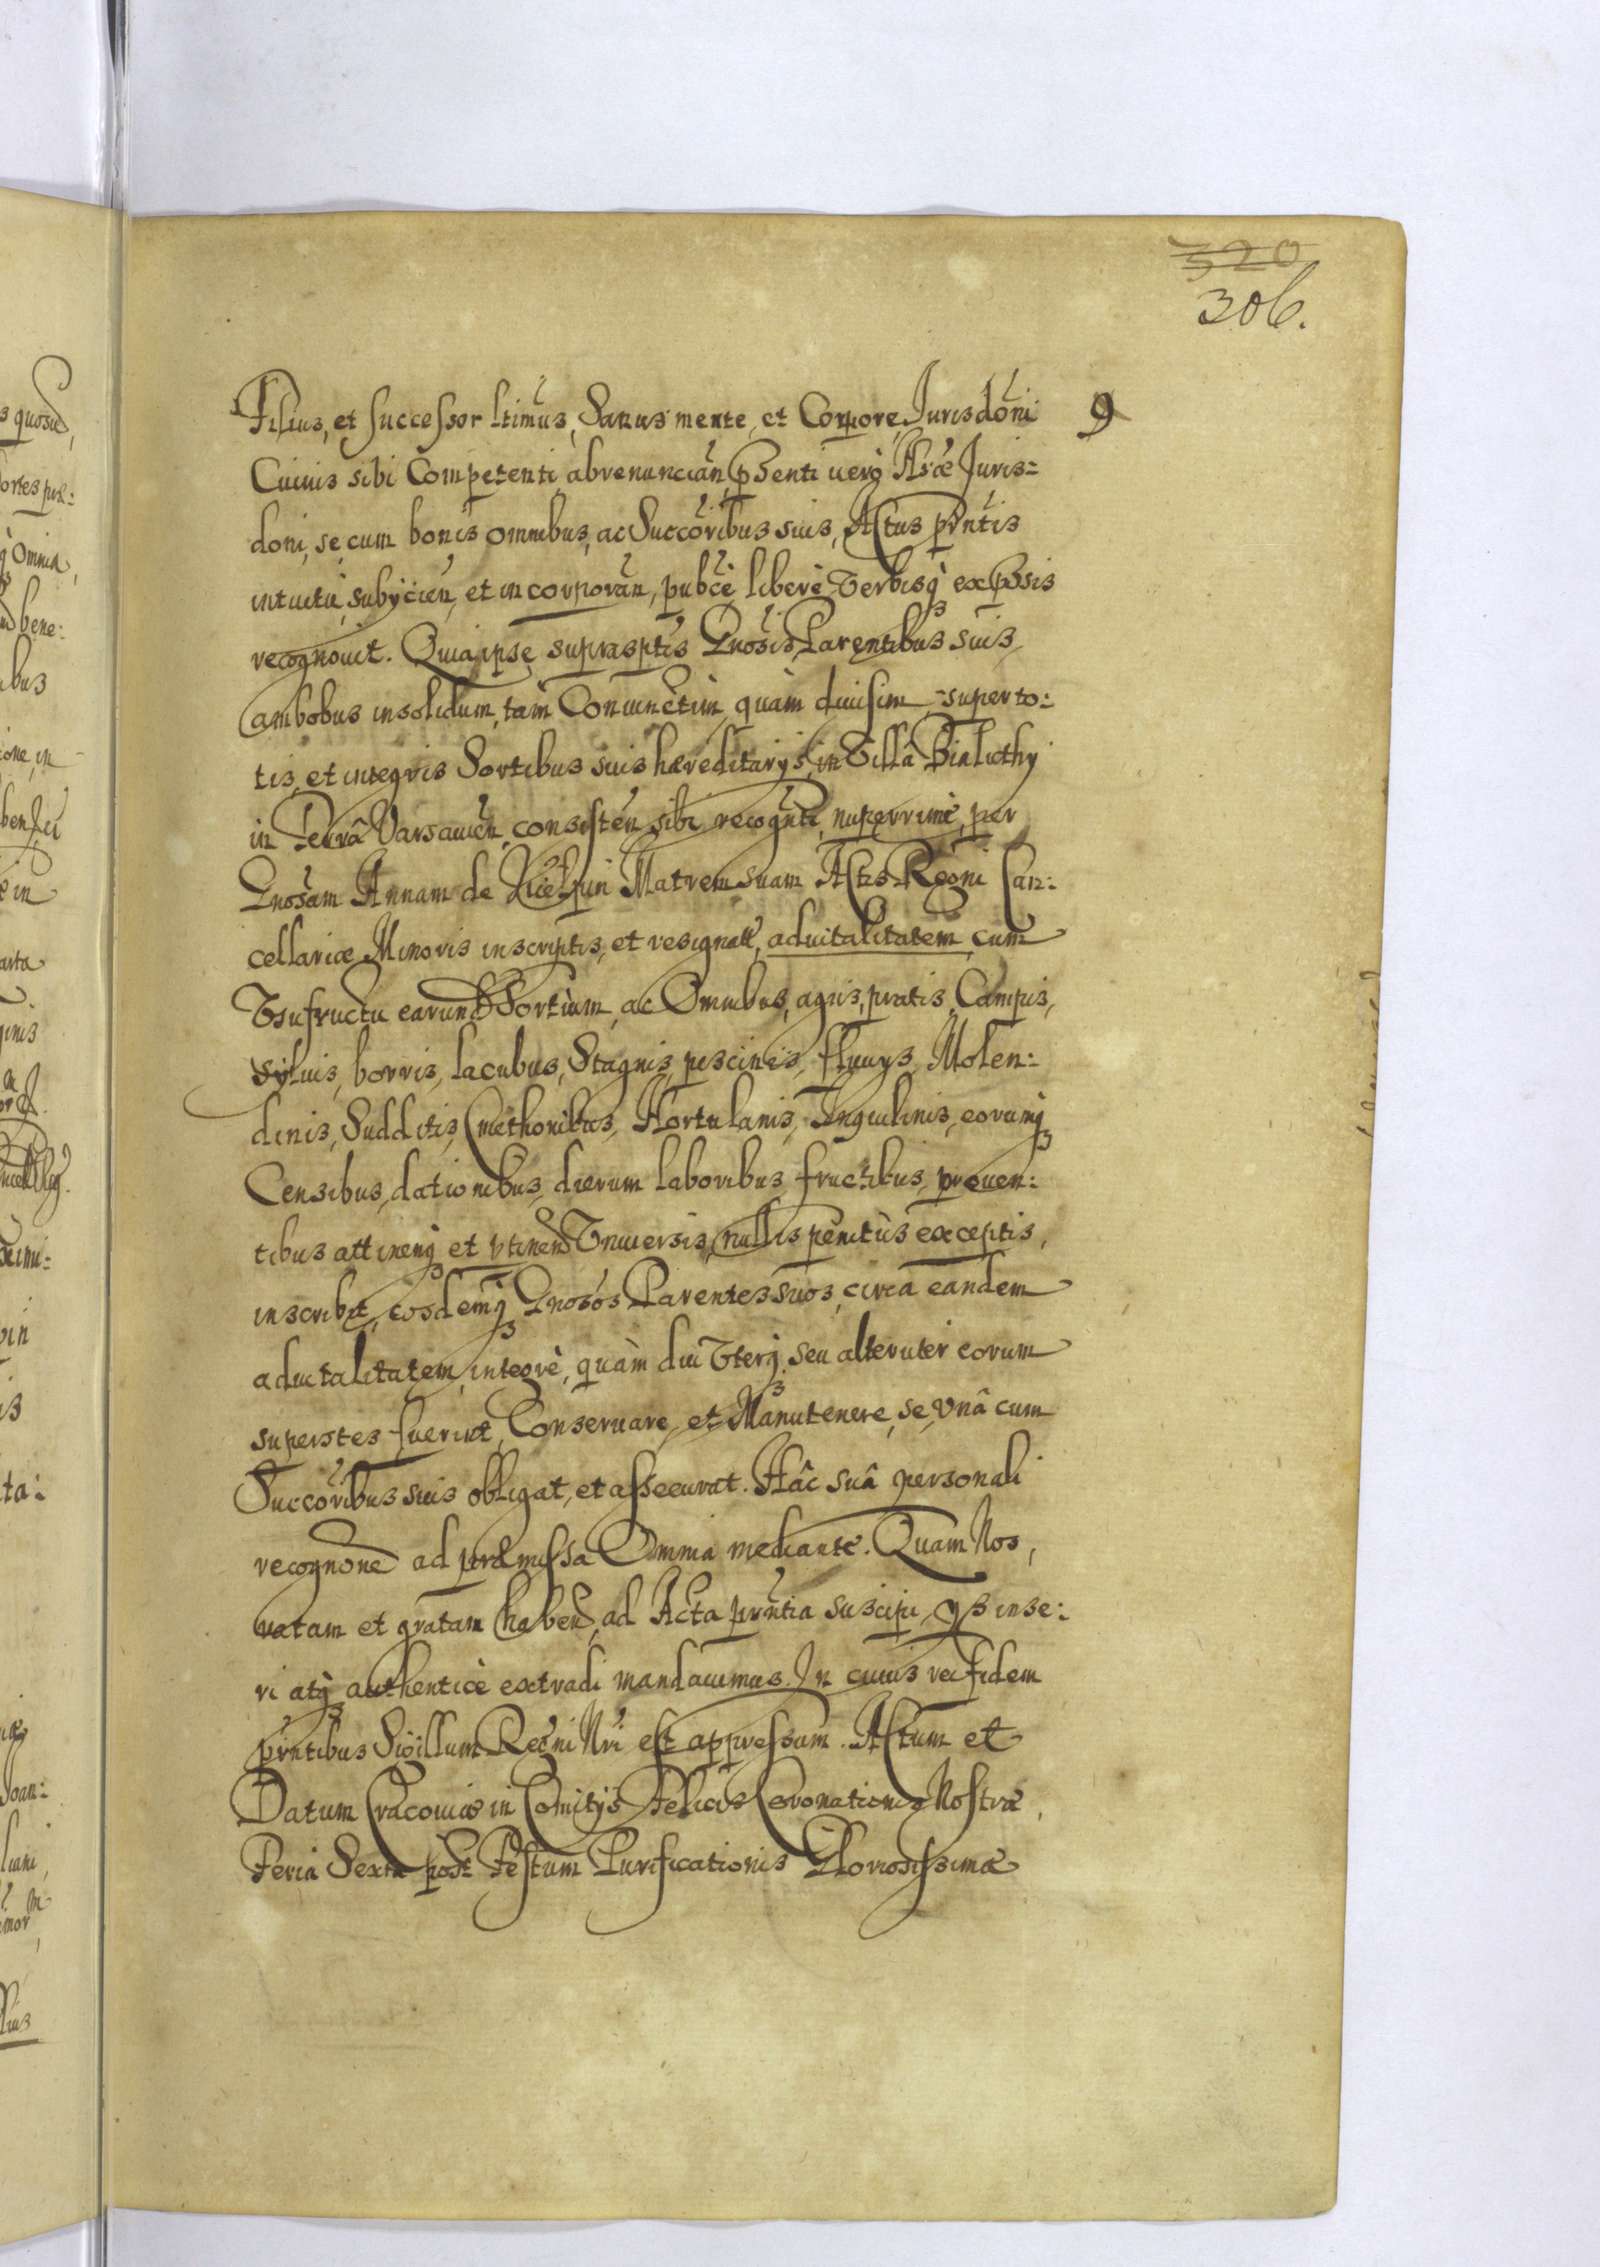 320
306.
9
Filius, et successor ltimus, Sanus mente, et Corpore, Jurisdoni
Cuiuis sibi Competenti abrenuncian, psenti uerò Hsæ Juris=
doni, se cum bonis omnibus, ac Succoribus suis, Actus pntis
intuitu, subijcien, et incorporan, pubcè liberè Verbisq expssis
recognouit. Quia ipse suprasptis Gnosis Parentibus suis
ambobus insolidum, tàm Coniunctim, quàm diuisim super to:
tis, et integris Sortibus suis hæreditarijs, in Villâ Bialuthy
in Terrâ Varsauien, consisten, sibi recognti, nuperrimè, per
Gnosam Annam de Matrem suam Actis Regni Can:
cellariæ Minoris inscriptis, et resignatt, aduitalitatem, cum
Vsufructu earund Sortium, ac Omnibus, agris, pratis, Campis,
syluis, borris, lacubus, Stagnis, piscinis, fluuijs, Molen:
dinis, Subditis, Cmethonibus, Hortulanis, Inquilinis, eorumq
Censibus, dationibus, dierum laboribus, fructibus, prouen:
tibus attinenq et ptinen Vniuersis, nullis penitùs exceptis,
inscribit, eosdemq Gnosos Parentes suos, circa eandem
aduitalitatem, integrè, quàm diu Vterq, seu alteruter eorum
superstes fuerint, Conseruare, et Manutenere, se, vnâ cum
Succoribus suis obligat, et assecurat. Hâc suâ personali
recognone ad præmissa Omnia mediante. Quam Nos,
ratam et gratam haben, ad Acta pntia suscipi, inse:
ri atq authenticè extradi mandauimus. In cuius rei fidem
pntibus Sigillum Regni Nri est appressum. Actum et
Datum Cracouiæ in Comitijs Felicis Coronationis Nostræ,
Feria Sexta post Festum Purificationis Gloriosissimæ